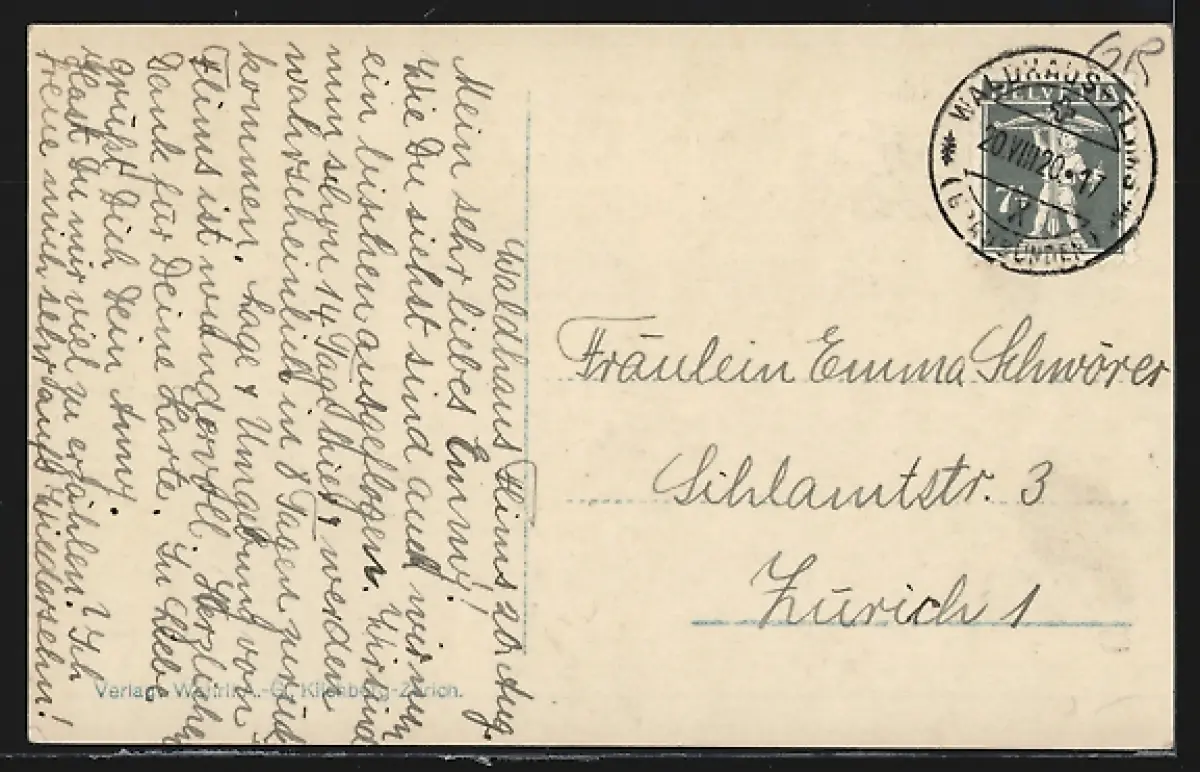 Waldhaus Flims 20. Aug.
Mein sehr liebes Emmy!
Wie Du siehst sind auch wir nun
ein bischen ausgeflogen. Wir sind
nun schon 14 Tage hier & werden
wahrscheinlich in 8 Tagen zurück
kommen. Lage & Umgebung von
Flims ist wundervoll. Herzlichen
Dank für Deine Karte. In Liebe
grüßt Dich Dein Anny.
Hast Du mir viel zu erzählen? Ich
freue mich sehr aufs Wiedersehn!
Verlag Wehrli A.-G. Kilchberg-Zürich.
GR
HELVETIA
7½
WALDHAUS-FLIMS
20.VIII.20.-17
IX
(GRAUBÜNDEN)
Fräulein Emma Schwörer
Sihlamtstr. 3
Zürich 1